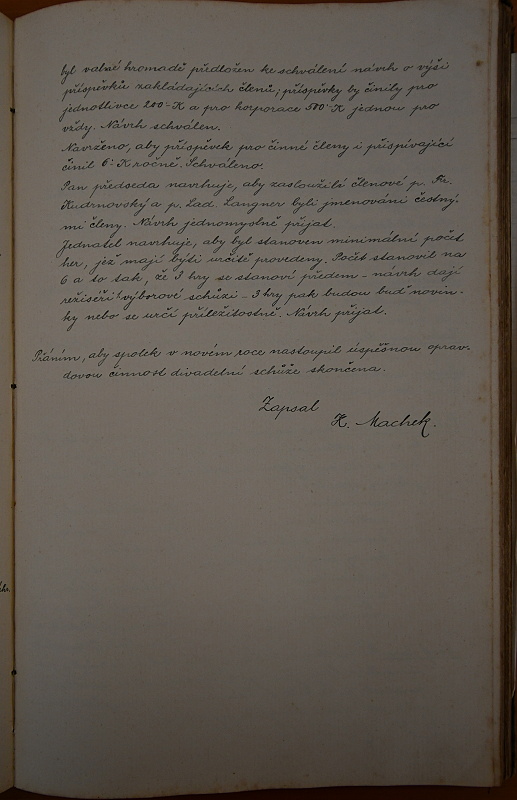 byl valné hromadě předložen ke schválení návrh o výši
příspěvků zakládajících členů; příspěvky by činily pro
jednotlivce 200·K a pro korporace 500·K jednou pro
vždy. Návrh schválen.
Navrženo, aby příspěvek pro činné členy i přispívající
činil 6·K ročně. Schváleno.
Pan předseda navrhuje, aby zasloužilí členové p. Fr.
Kudrnovský a p. Lad. Langner byli jmenováni čestný-
mi členy. Návrh jednomyslně přijat.
Jednatel navrhuje, aby byl stanoven minimální počet
her, jež mají býti určitě provedeny. Počet stanovil na
6 a to tak, že 3 hry se stanoví předem – návrh dají
režiséři výborové schůzi – 3 hry pak budou buď novin-
ky nebo se určí příležitostně. Návrh přijat.
Přáním, aby spolek v novém roce nastoupil úspěšnou oprav-
dovou činnost divadelní schůze skončena.
Zapsal
K. Machek.